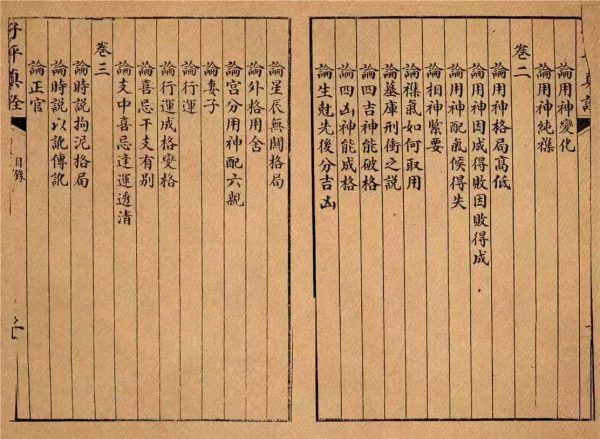 論用神變化
論用神純襍
卷二
論用神格局高低
論用神因成得敗因敗得成
論用神配氣候得失
論相神緊要
論襍氣如何取用
論墓庫刑衝之說
論四吉神能破格
論四凶神能成格
論生尅先後分吉凶
論星辰無關格局
論外格用舍
論宮分用神配六親
論妻子
論行運
論行運成格變格
論喜忌干支有別
論支中喜忌逢運透清
卷三
論時說拘泥格局
論時說以訛傳訛
論正官
子平真詮
目錄